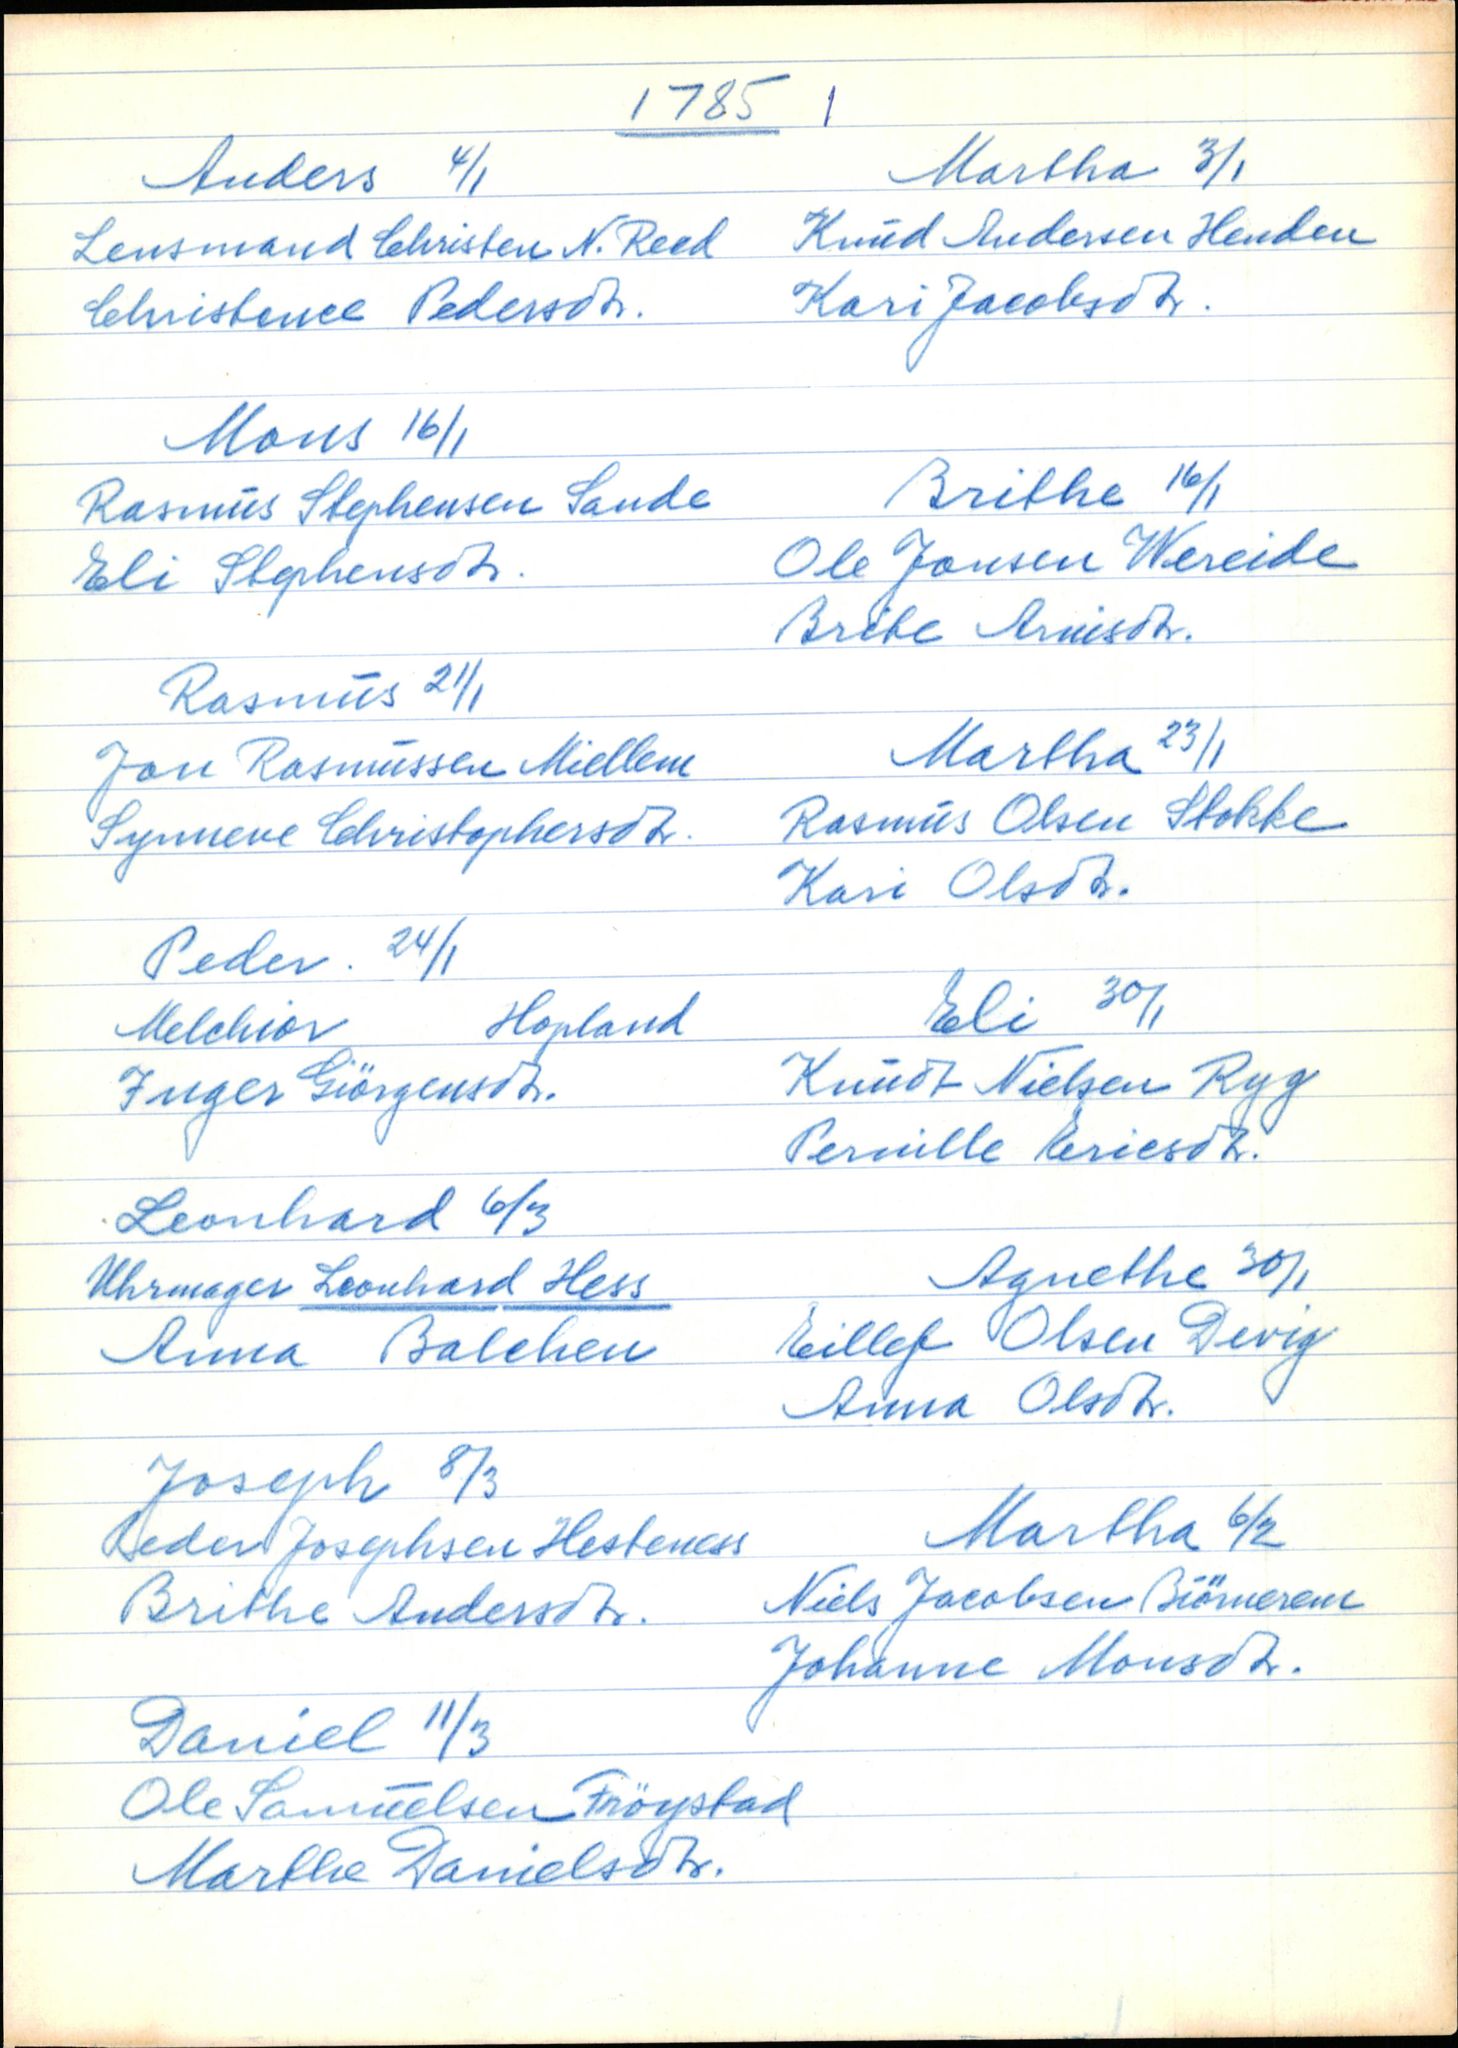 1785 1
Anders 4/1
Lensmand Christen N. Reed
Christence Pedersdtr.
Mons 16/1
Rasmus Stephensen Sande
Eli Stephensdtr.
Rasmus 21/1
Jon Rasmussen Miellem
Synneve Christophersdtr.
Peder. 24/1
Melchior Hopland
Inger Giörgensdtr.
Leonhard 6/3
Uhrmager Leonhard Hess
Anna Balchen
Joseph 8/3
Peder Josephsen Hesteness
Brithe Andersdtr.
Daniel 11/3
Ole Samuelsen Fröystad
Marthe Danielsdtr.
Martha 3/1
Knud Andersen Henden
Kari Jacobsdtr.
Brithe 16/1
Ole Jonsen Wereide
Brite Arnisdtr.
Martha 23/1
Rasmus Olsen Stokke
Kari Olsdtr.
Eli 30/1
Knudt Nielsen Ryg
Pernille Ericsdtr.
Agnethe 30/1
Eillef Olsen Devig
Anna Olsdtr.
Martha 6/2
Niels Jacobsen Biörnerem
Johanne Monsdtr.